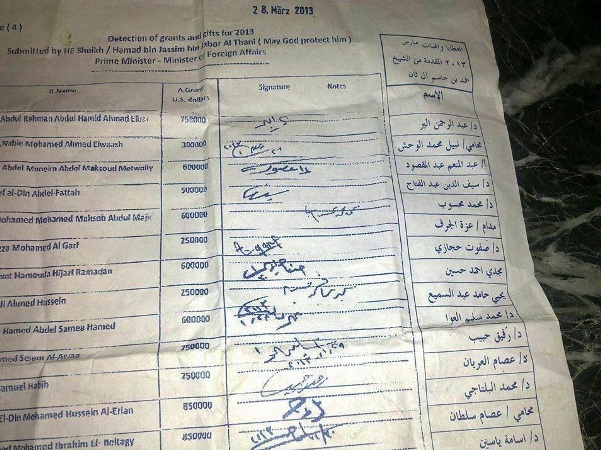 28. März 2013
e ( 4 )
Detection of grants and gifts for 2013
Submitted by HE Sheikh / Hamad bin Jassim bin Jabor Al Thani ( May God protect him )
Prime Minister - Minister of Foreign Affairs
Name
A.Grant U.S. dollars
Signature
Notes
Abdul Rahman Abdul Hamid Ahmad Elbar
750000
Nabie Mohamed Ahmed Elwaash
300000
Abdel Monem Abdel Maksoud Metwally
600000
f al-Din Abdel-Fattah
500000
ohamed Mohamed Mahsob Abdul Maje
600000
zza Mohamed Al Garf
250000
wat Hamouda Hijazi Ramadan
600000
di Ahmed Hussein
250000
Hamed Abdel Samea Hamed
600000
med Selem Al-Awaa
750000
amuel Habib
750000
El-Din Mohamed Hussein Al-Erian
850000
ed Mohamed Ibrahim El- Beltagy
850000
العطايا والهبات مارس
٢٠١٣ المقدمة من الشيخ
حمد بن جاسم آل ثان
الإسم
د/ عبد الرحمن البر
محامي/ نبيل محمد الوحش
أ/ عبد المنعم عبد المقصود
د/ سيف الدين عبد الفتاح
د/ محمد محسوب
مدام / عزة الجرف
د/ صفوت حجازي
مجدي احمد حسين
يحي حامد عبد السميع
د/ محمد سليم العوا
د/ رفيق حبيب
د/ عصام العريان
د/ محمد البلتاجي
محامي / عصام سلطان
د/ اسامة ياسين